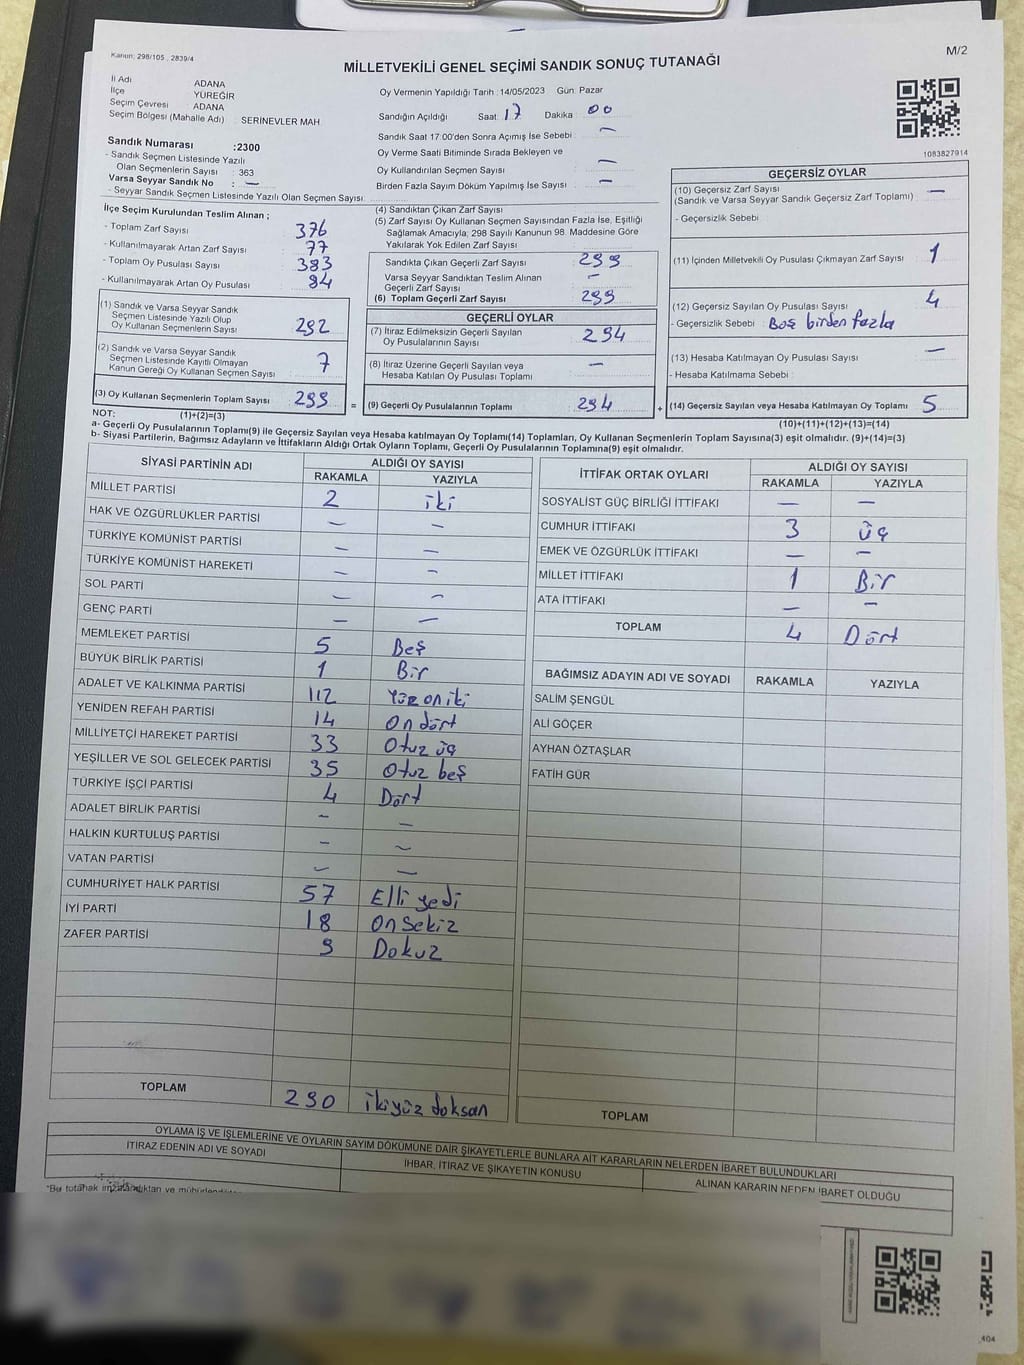 Kanun: 298/105 , 2839/4
M/2
MİLLETVEKİLİ GENEL SEÇİMİ SANDIK SONUÇ TUTANAĞI
İl Adı ADANA
İlçe YÜREĞİR
Seçim Çevresi ADANA
Seçim Bölgesi (Mahalle Adı) : SERİNEVLER MAH.
Oy Vermenin Yapıldığı Tarih : 14/05/2023 Gün: Pazar
Sandığın Açıldığı Saat: 17 Dakika : 00
Sandık Saat 17:00'den Sonra Açımış İse Sebebi : –
Oy Verme Saati Bitiminde Sırada Bekleyen ve
Oy Kullandırılan Seçmen Sayısı : –
Birden Fazla Sayım Döküm Yapılmış İse Sayısı : –
1083827914
Sandık Numarası :2300
- Sandık Seçmen Listesinde Yazılı
Olan Seçmenlerin Sayısı : 363
Varsa Seyyar Sandık No : –
- Seyyar Sandık Seçmen Listesinde Yazılı Olan Seçmen Sayısı :
İlçe Seçim Kurulundan Teslim Alınan ;
- Toplam Zarf Sayısı 376
- Kullanılmayarak Artan Zarf Sayısı : 77
- Toplam Oy Pusulası Sayısı : 383
- Kullanılmayarak Artan Oy Pusulası : 84
(1) Sandık ve Varsa Seyyar Sandık
Seçmen Listesinde Yazılı Olup
Oy Kullanan Seçmenlerin Sayısı : 292
(2) Sandık ve Varsa Seyyar Sandık
Seçmen Listesinde Kayıtlı Olmayan
Kanun Gereği Oy Kullanan Seçmen Sayısı : 7
(3) Oy Kullanan Seçmenlerin Toplam Sayısı : 299
(4) Sandıktan Çıkan Zarf Sayısı :
(5) Zarf Sayısı Oy Kullanan Seçmen Sayısından Fazla İse, Eşitliği
Sağlamak Amacıyla; 298 Sayılı Kanunun 98. Maddesine Göre
Yakılarak Yok Edilen Zarf Sayısı :
Sandıkta Çıkan Geçerli Zarf Sayısı : 299
Varsa Seyyar Sandıktan Teslim Alınan
Geçerli Zarf Sayısı : –
(6) Toplam Geçerli Zarf Sayısı : 299
GEÇERLİ OYLAR
(7) İtiraz Edilmeksizin Geçerli Sayılan
Oy Pusulalarının Sayısı : 294
(8) İtiraz Üzerine Geçerli Sayılan veya
Hesaba Katılan Oy Pusulası Toplamı : –
= (9) Geçerli Oy Pusulalarının Toplamı : 294 +
GEÇERSİZ OYLAR
(10) Geçersiz Zarf Sayısı : –
(Sandık ve Varsa Seyyar Sandık Geçersiz Zarf Toplamı)
- Geçersizlik Sebebi
(11) İçinden Milletvekili Oy Pusulası Çıkmayan Zarf Sayısı : 1
(12) Geçersiz Sayılan Oy Pusulası Sayısı : 4
- Geçersizlik Sebebi : Boş birden fazla
(13) Hesaba Katılmayan Oy Pusulası Sayısı : –
- Hesaba Katılmama Sebebi :
(14) Geçersiz Sayılan veya Hesaba Katılmayan Oy Toplamı : 5
NOT: (1)+(2)=(3)
(10)+(11)+(12)+(13)=(14)
a- Geçerli Oy Pusulalarının Toplamı(9) ile Geçersiz Sayılan veya Hesaba katılmayan Oy Toplamı(14) Toplamları, Oy Kullanan Seçmenlerin Toplam Sayısına(3) eşit olmalıdır. (9)+(14)=(3)
b- Siyasi Partilerin, Bağımsız Adayların ve İttifakların Aldığı Ortak Oyların Toplamı, Geçerli Oy Pusulalarının Toplamına(9) eşit olmalıdır.
SİYASİ PARTİNİN ADI ALDIĞI OY SAYISI
RAKAMLA YAZIYLA
MİLLET PARTİSİ 2 iki
HAK VE ÖZGÜRLÜKLER PARTİSİ – –
TÜRKİYE KOMÜNİST PARTİSİ – –
TÜRKİYE KOMÜNİST HAREKETİ – –
SOL PARTİ – –
GENÇ PARTİ – –
MEMLEKET PARTİSİ 5 Beş
BÜYÜK BİRLİK PARTİSİ 1 Bir
ADALET VE KALKINMA PARTİSİ 112 Yüz on iki
YENİDEN REFAH PARTİSİ 14 On dört
MİLLİYETÇİ HAREKET PARTİSİ 33 Otuz üç
YEŞİLLER VE SOL GELECEK PARTİSİ 35 Otuz beş
TÜRKİYE İŞÇİ PARTİSİ 4 Dört
ADALET BİRLİK PARTİSİ – –
HALKIN KURTULUŞ PARTİSİ – –
VATAN PARTİSİ – –
CUMHURİYET HALK PARTİSİ 57 Elli yedi
İYİ PARTİ 18 On sekiz
ZAFER PARTİSİ 9 Dokuz
TOPLAM 290 iki yüz doksan
İTTİFAK ORTAK OYLARI ALDIĞI OY SAYISI
RAKAMLA YAZIYLA
SOSYALİST GÜÇ BİRLİĞİ İTTİFAKI – –
CUMHUR İTTİFAKI 3 üç
EMEK VE ÖZGÜRLÜK İTTİFAKI – –
MİLLET İTTİFAKI 1 Bir
ATA İTTİFAKI – –
TOPLAM 4 Dört
BAĞIMSIZ ADAYIN ADI VE SOYADI RAKAMLA YAZIYLA
SALİM ŞENGÜL
ALİ GÖÇER
AYHAN ÖZTAŞLAR
FATİH GÜR
TOPLAM
OYLAMA İŞ VE İŞLEMLERİNE VE OYLARIN SAYIM DÖKÜMÜNE DAİR ŞİKAYETLERLE BUNLARA AİT KARARLARIN NELERDEN İBARET BULUNDUKLARI
İTİRAZ EDENİN ADI VE SOYADI
İHBAR, İTİRAZ VE ŞİKAYETİN KONUSU
ALINAN KARARIN NEDEN İBARET OLDUĞU
404